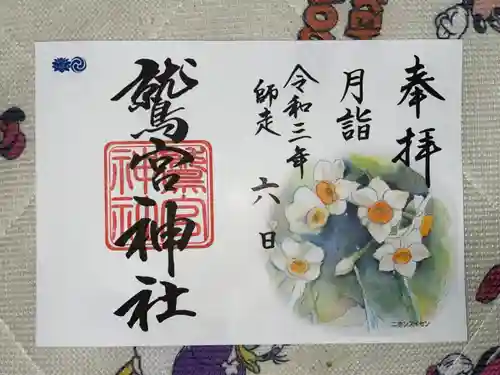 奉拝
月詣
令和三年
師走 六日
鷲宮神社
鷲宮神社
ニホンズイセン